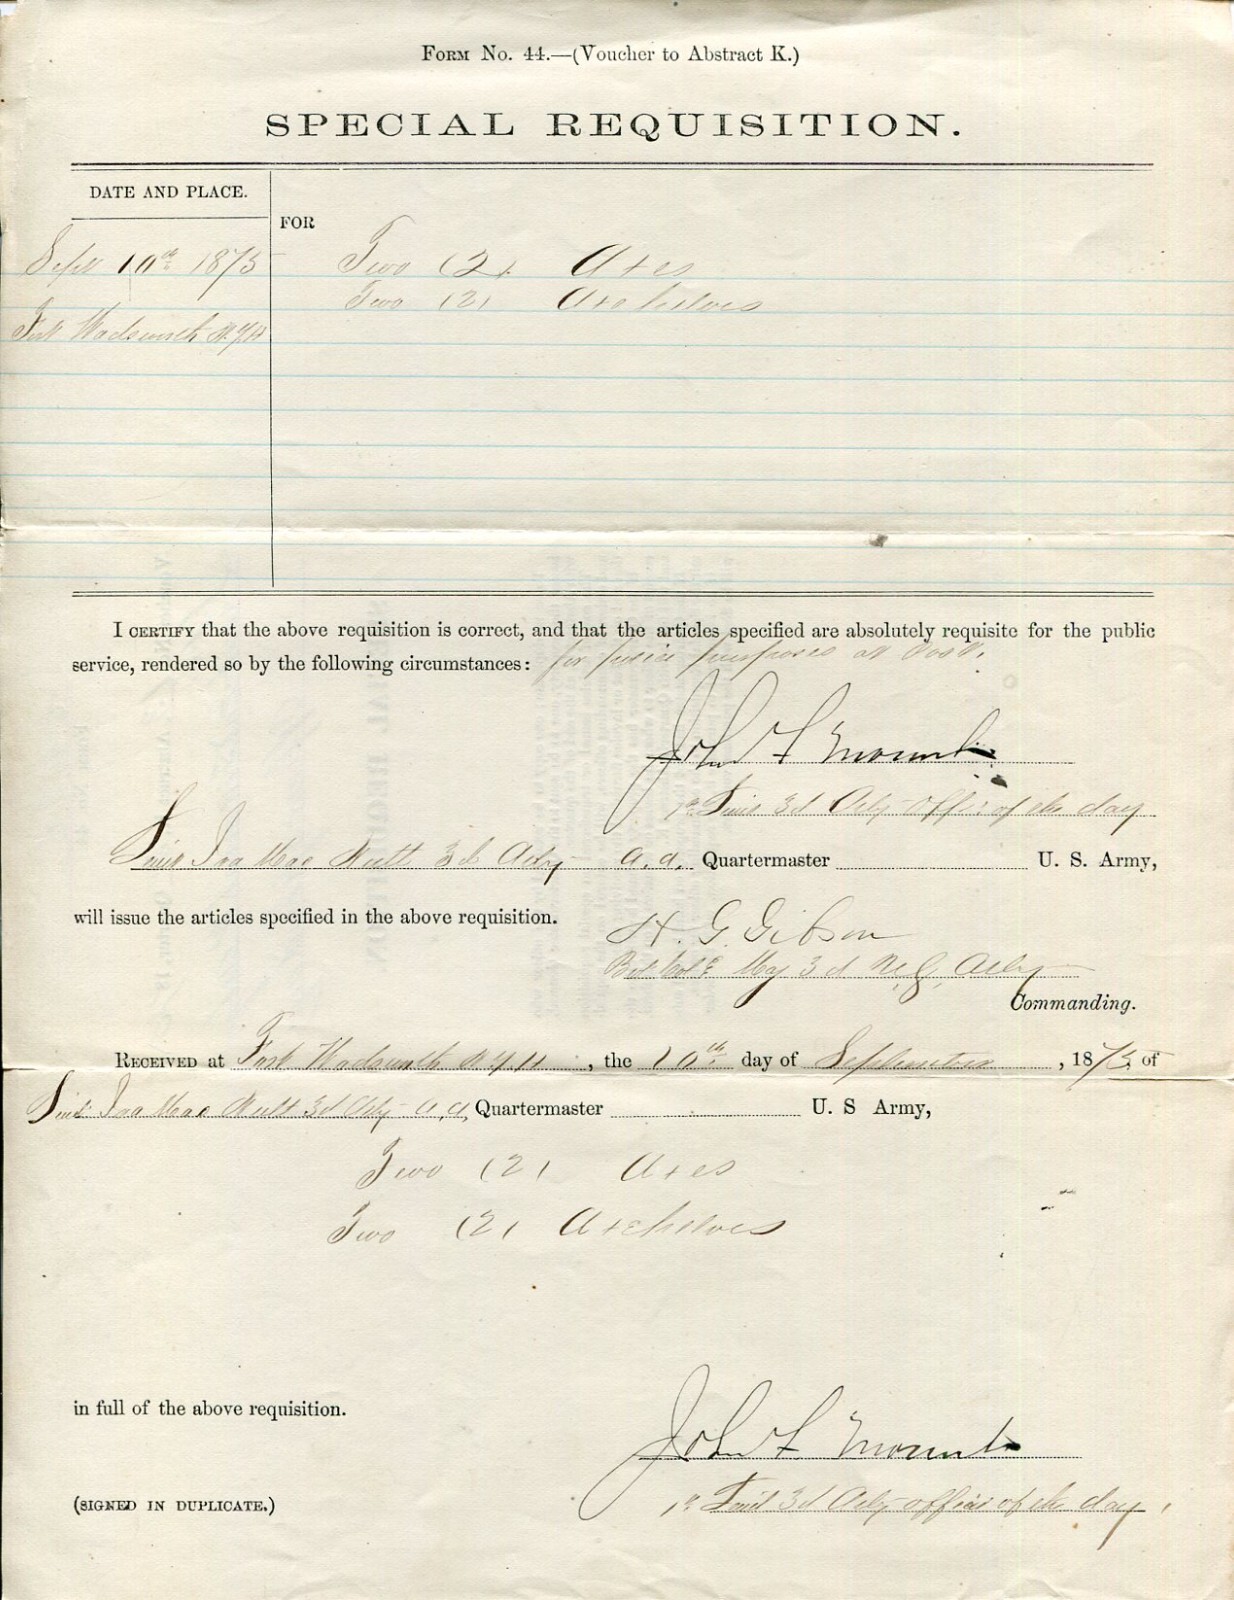 Form No. 44.—(Voucher to Abstract K.)
SPECIAL REQUISITION.
DATE AND PLACE.
FOR
Sept 10th 1873
Two (2) Axes
Two (2) Axe helves
Fort Wadsworth N.Y.H
I CERTIFY that the above requisition is correct, and that the articles specified are absolutely requisite for the public
service, rendered so by the following circumstances: for police purposes at Post.
John F Mount
1st Lieut 3d Arty officer of the day
Lieut Ira MacNutt 3d Arty A.A. Quartermaster U. S. Army,
will issue the articles specified in the above requisition.
H. G. Gibson
Bvt Col & Maj 3d Arty
Commanding.
RECEIVED at Fort Wadsworth N.Y.H, the 10th day of September, 1873, of
Lieut Ira MacNutt 3d Arty A.A. Quartermaster U. S Army,
Two (2) Axes
Two (2) Axehelves
in full of the above requisition.
John F Mount
(SIGNED IN DUPLICATE.)
1st Lieut 3d Arty officer of the day